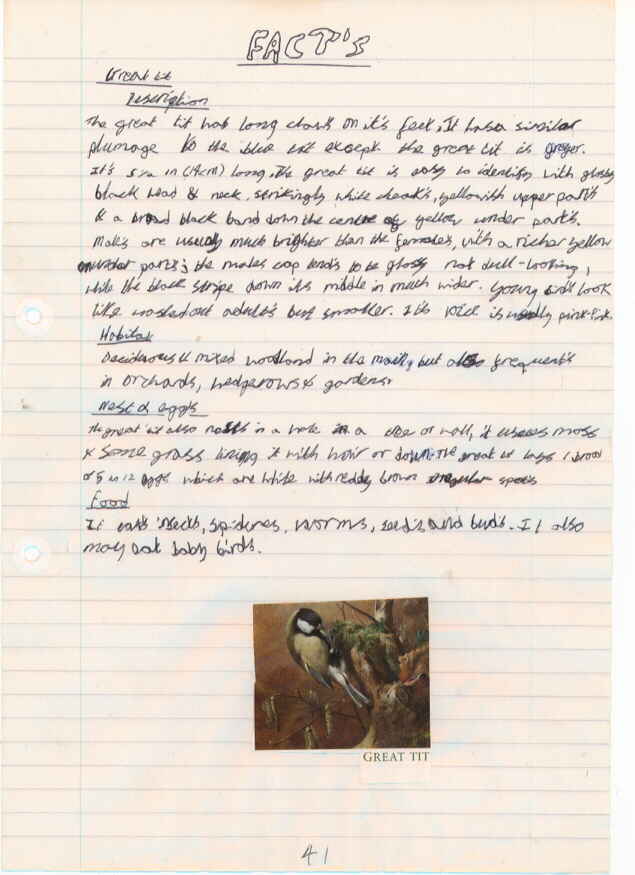 FACT'S
Great tit
Description
The great tit has long claws on it's feet, It has a similar
plumage to the blue tit except the great tit is greyer.
It's 5 1/2 in (14cm) long, The great tit is easy to identify with glossy
black head & neck, strikingly white cheak's, yellowith upper part's
& a broad black band down the centre of yellow under part's.
Males are usually much brighter than the females, with a richer yellow
under parts; the males cap tend's to be glossy not dull-looking,
while the black stripe down its middle in much wider. Young look
like washed out adults but smaller. It's voice is usually pink-pink.
Habitat
Deciderous & mixed woodland in the mainly but also frequent's
in orchards, hedgerows & gardens.
Nest & eggs
The great tit also nests in a hole in a tree or wall, it uses moss
& some grass lining it with hair or down. The great tit lays 1 brood
of 5 to 12 eggs which are white with reddy brown irregular spots
Food
It eat's insects, spiders, worms, seed's and bud's. It also
may eat baby birds.
GREAT TIT
41